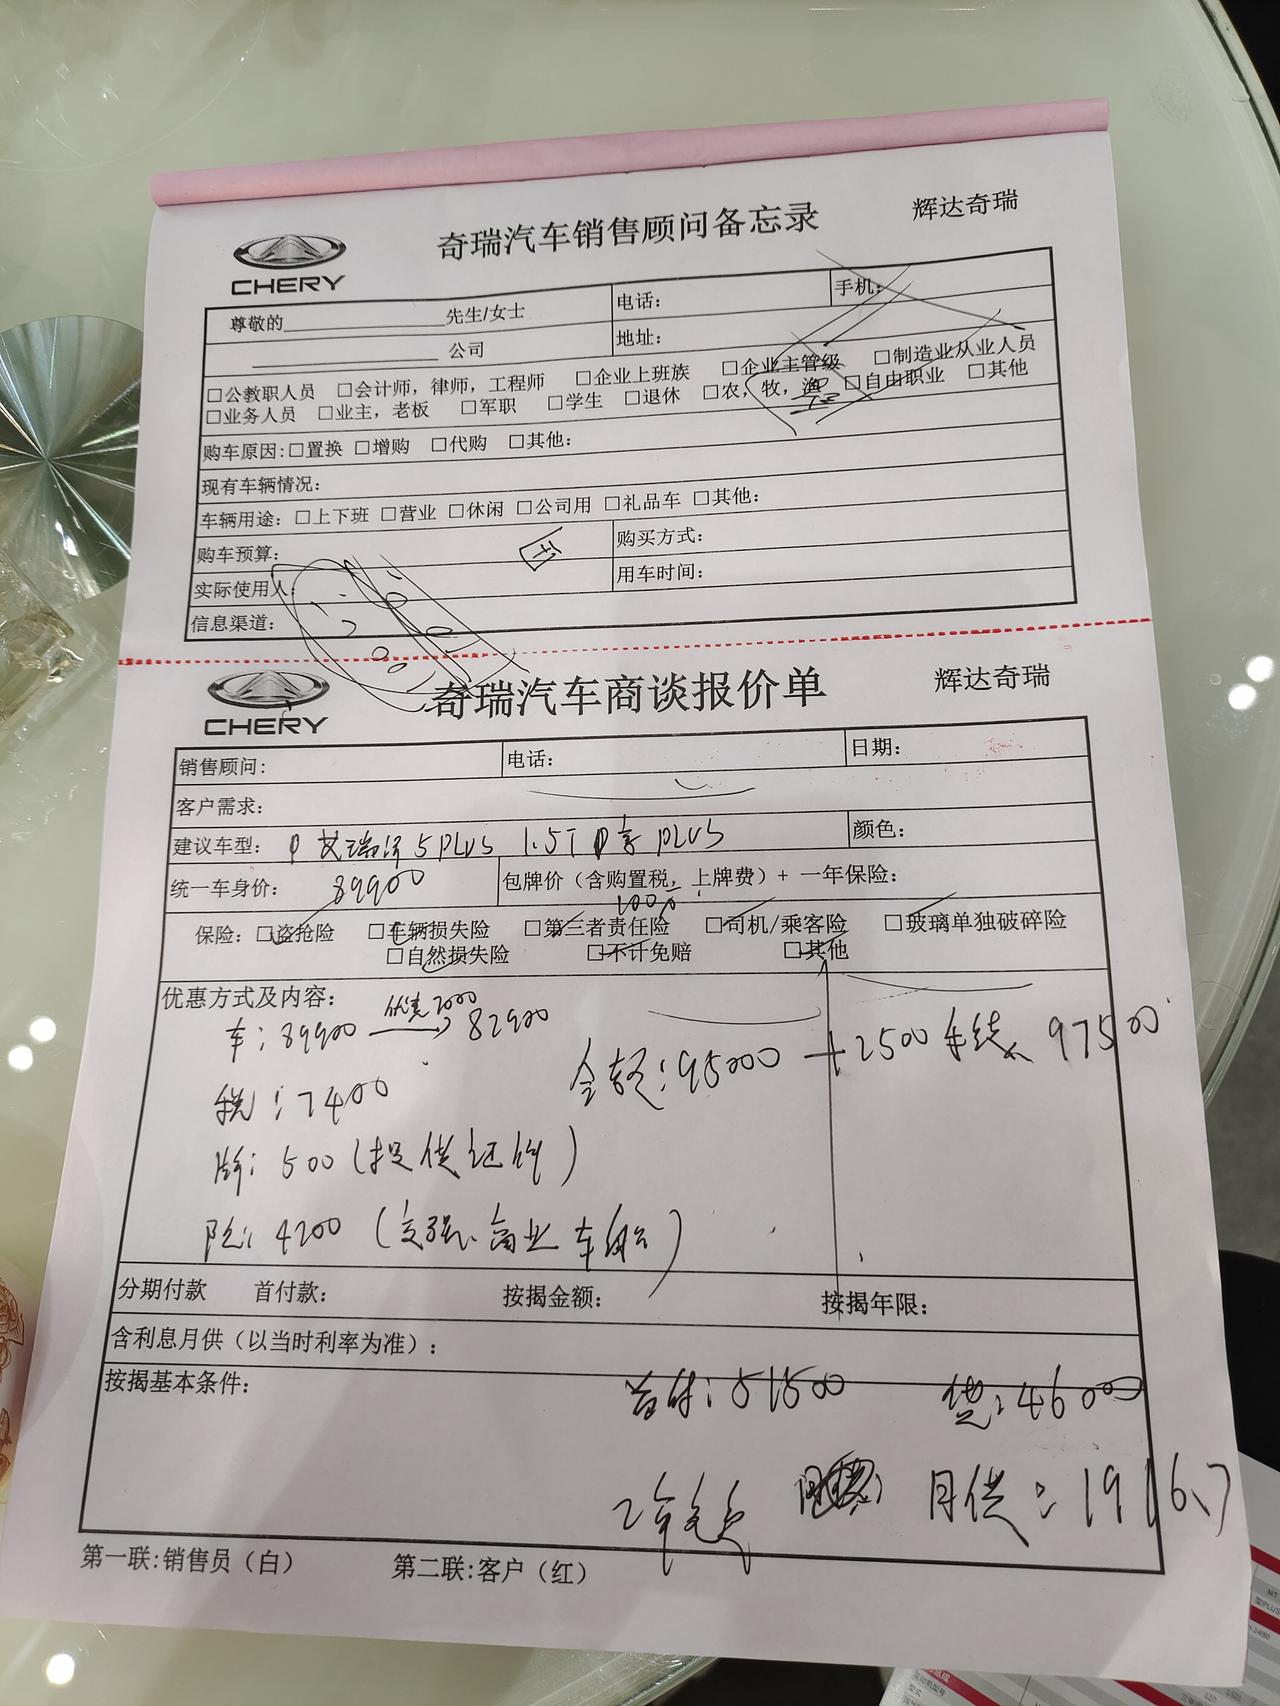 奇瑞汽车销售顾问备忘录
辉达奇瑞
CHERY
尊敬的 先生/女士
电话：
手机：
公司
地址：
□公教职人员 □会计师，律师，工程师 □企业上班族 □企业主管级 □制造业从业人员
□业务人员 □业主，老板 □军职 □学生 □退休 □农，牧，渔 □自由职业 □其他
购车原因:□置换 □增购 □代购 □其他：
现有车辆情况：
车辆用途：□上下班 □营业 □休闲 □公司用 □礼品车 □其他：
购车预算：
购买方式：
实际使用人
用车时间：
信息渠道：
奇瑞汽车商谈报价单
辉达奇瑞
CHERY
销售顾问：
电话：
日期：
客户需求：
建议车型： 艾瑞泽5PLUS 1.5T 享PLUS
颜色：
统一车身价： 89900
包牌价（含购置税，上牌费）+ 一年保险：
100万
保险：□盗抢险 □车辆损失险 □第三者责任险 □司机/乘客险 □玻璃单独破碎险
□自然损失险 □不计免赔 □其他
优惠方式及内容：
车：89900 优惠7000 82900
全款：95000 +2500手续 97500
税：7400
牌：500（提供证件）
险：4200（交强、商业 车船）
分期付款 首付款： 按揭金额： 按揭年限：
含利息月供（以当时利率为准）：
按揭基本条件：
首付：51500 贷：46000
2年免息 月供：1916.7
第一联:销售员（白） 第二联:客户（红）